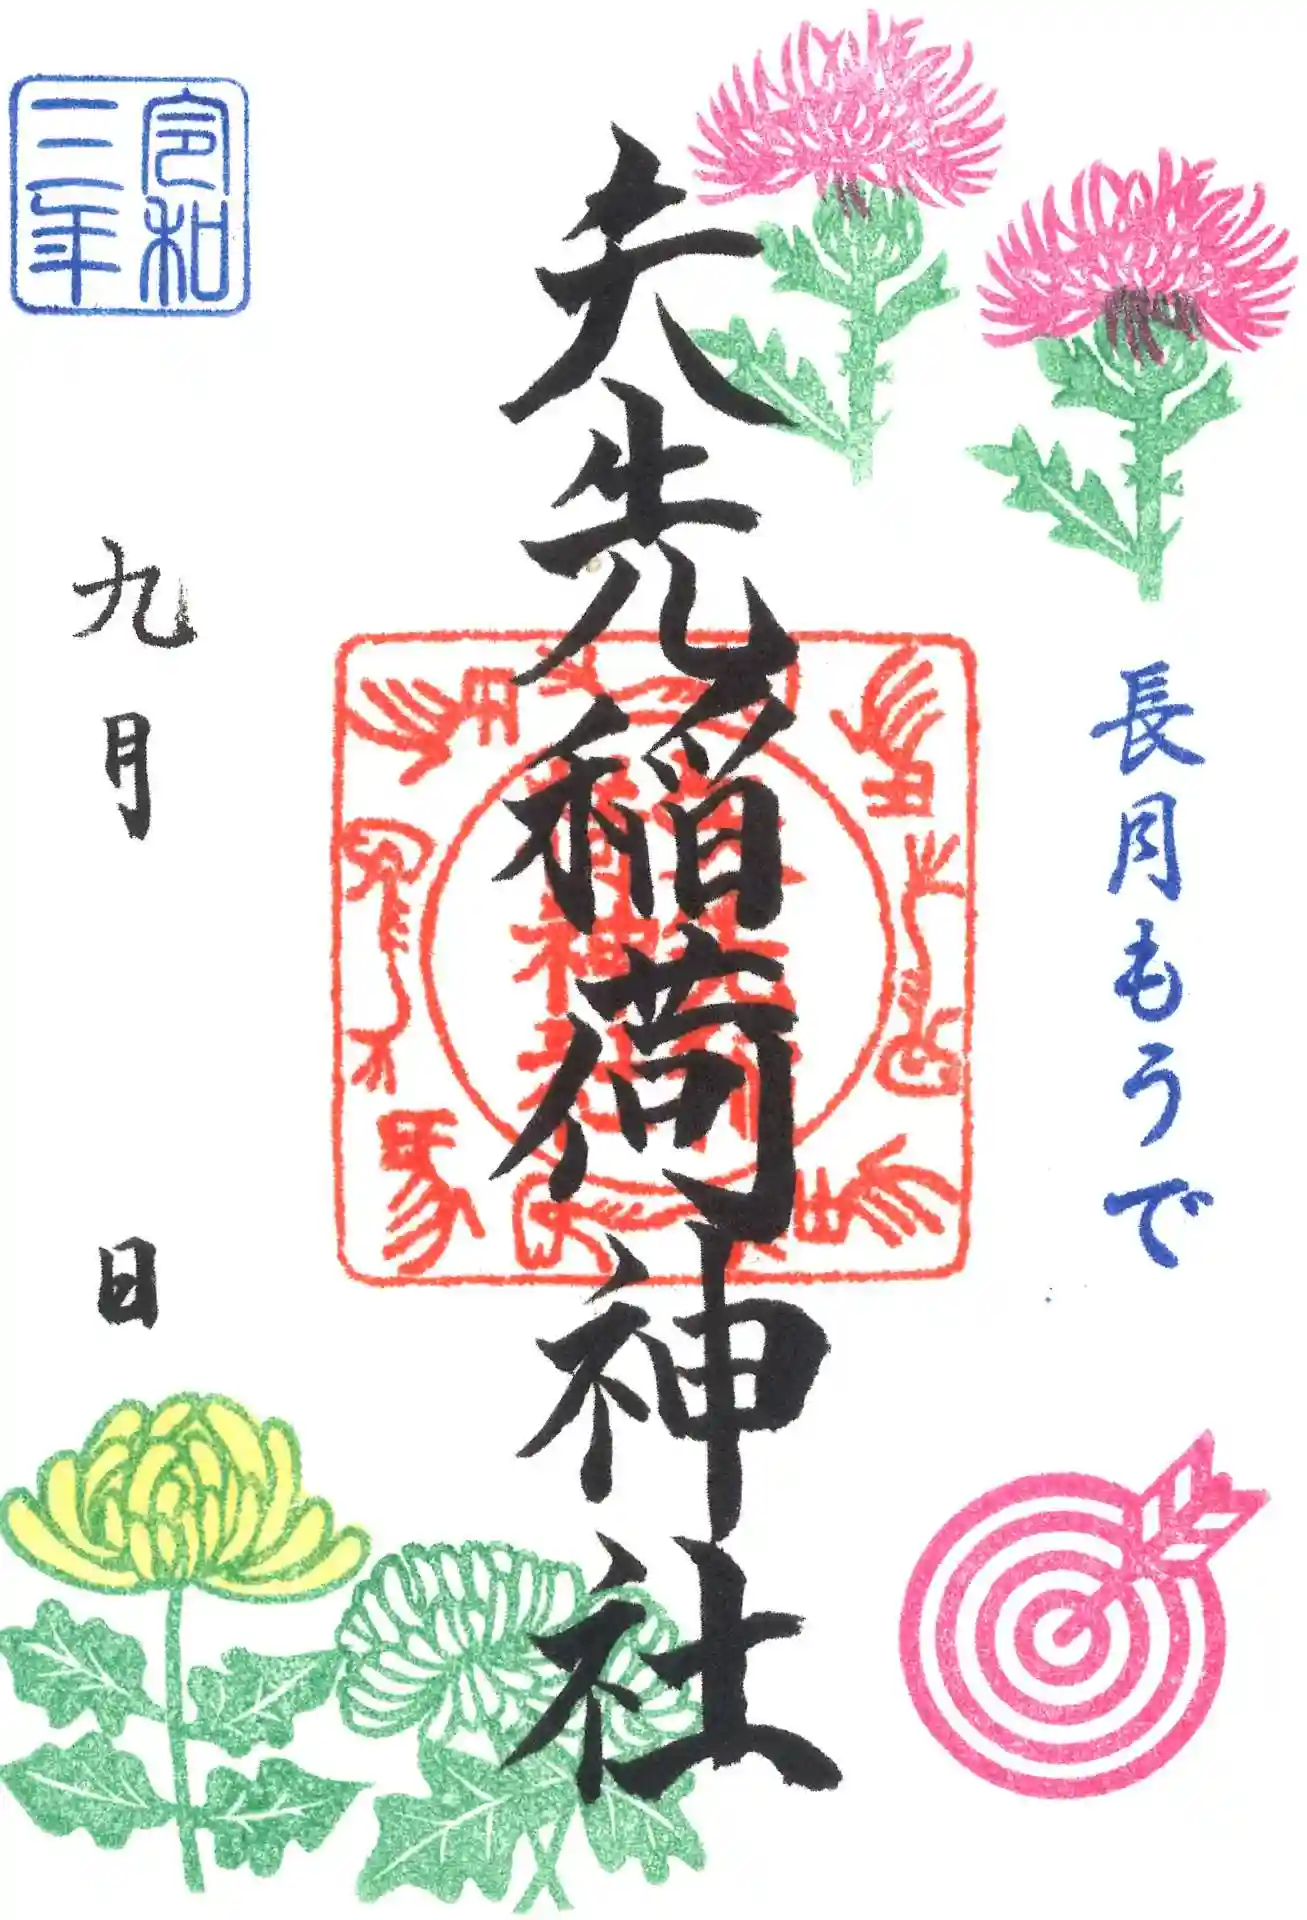 長月もうで
矢先稲荷神社
令和
三年
九月　日